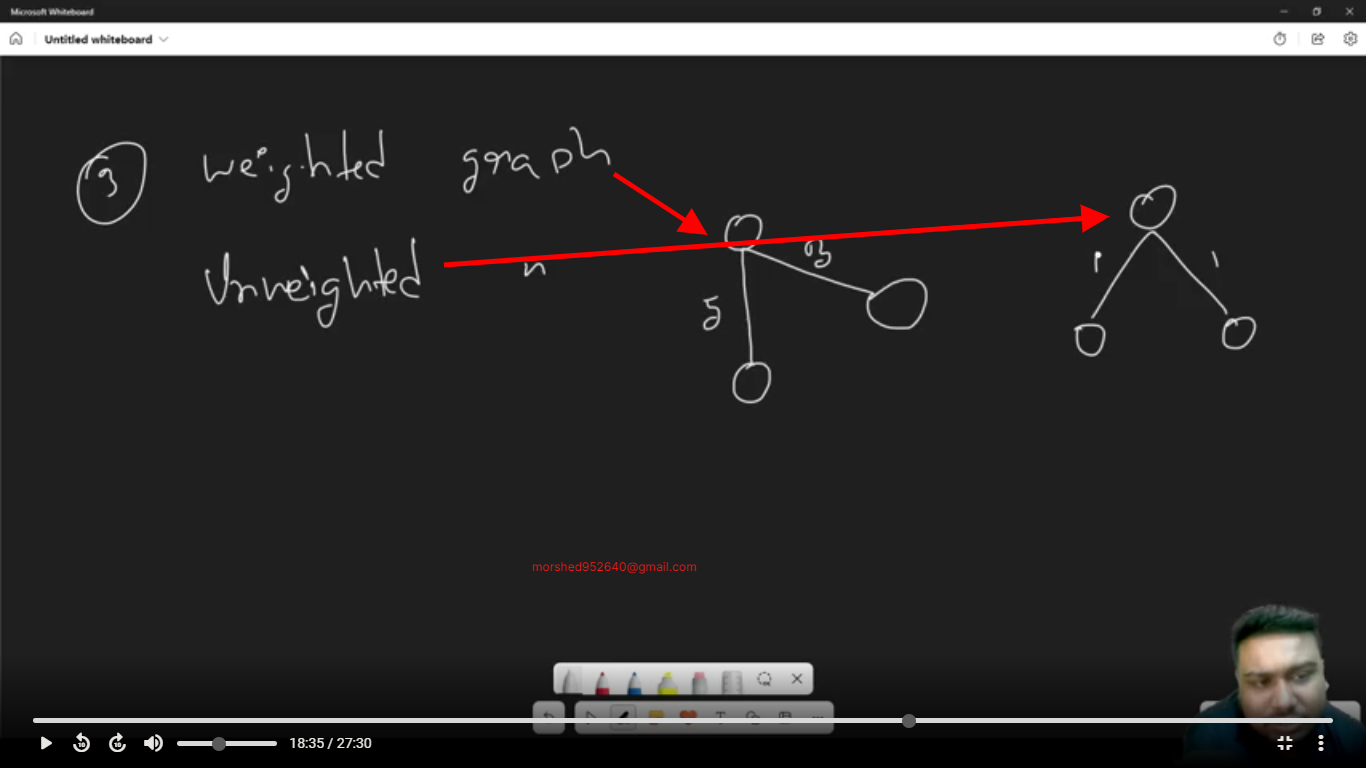 Microsoft Whiteboard
Untitled whiteboard
3 weighted graph
Unweighted "
3
5
1 1
morshed952640@gmail.com
10 10 18:35 / 27:30